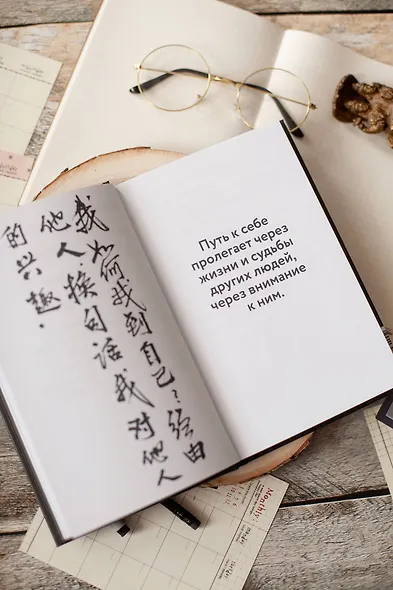 我如何找到自己？经由
他人换句话我对他人
的兴趣.
Путь к себе
пролегает через
жизни и судьбы
других людей,
через внимание
к ним.
Monthly: